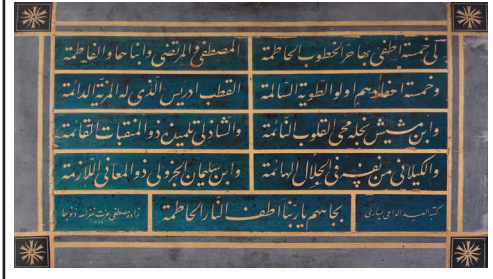 لي خمسة اطفي بها حر الخطوب الحاطمة المصطفى والمرتضى وابناهما والفاطمة
وخمسة احفادهم اولو الطوية السالمة القطب ادريس الذي له المزية الدائمة
وابن مشيش نجله محي القلوب النائمة والشاذلي تلميذه ذو المنقبات القائمة
والكيلاني من في الجلال الهائمة وابن سليمان الجزولي ذو المعاني اللازمة
كتبه العبد الداعي يساري بجاههم يا ربنا اطف النار الحاطمة زاده مصطفى عزت غفر الله ذنوبهما